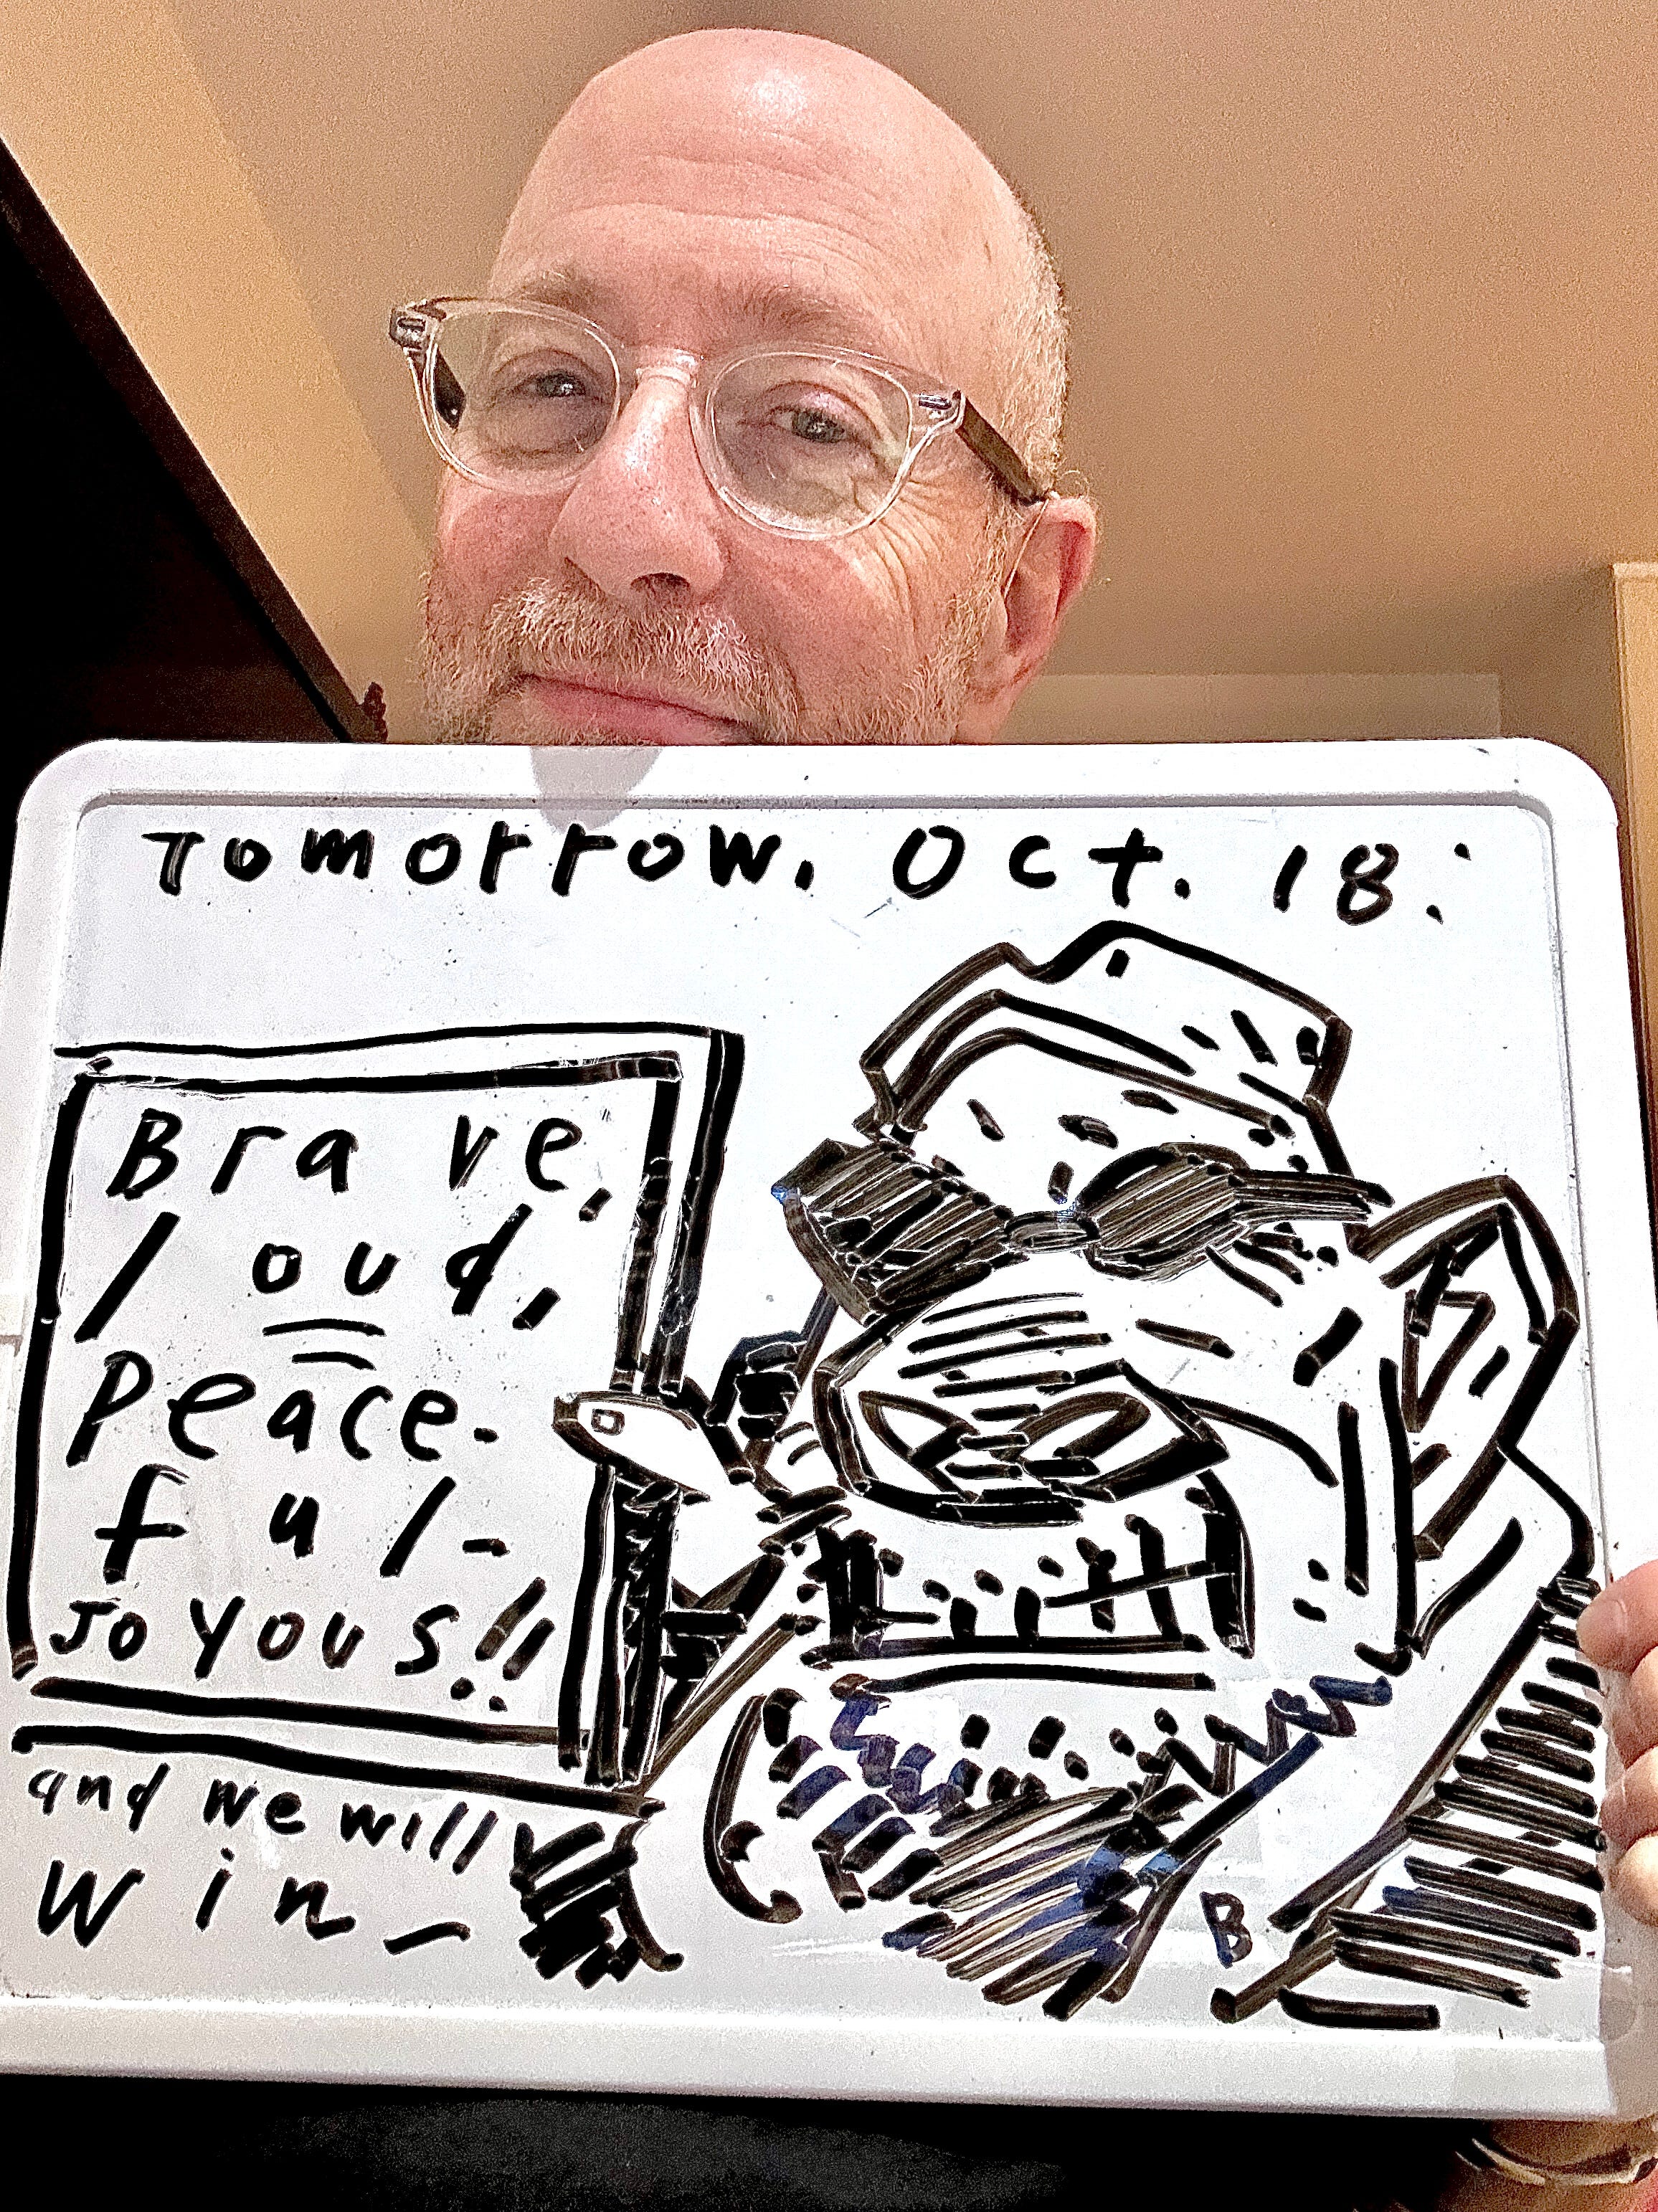 Tomorrow, Oct. 18:
Brave,
loud,
Peace-
ful-
Joyous!!
and we will
win-
B